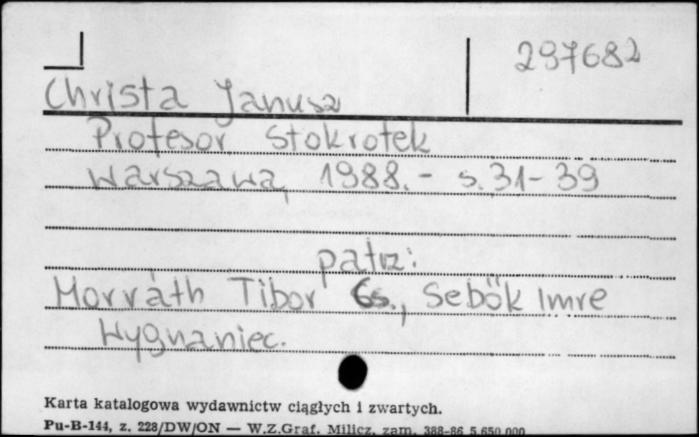 297682
Christa Janusz
Profesor Stokrotek
Warszawa, 1988. - s. 31-39
patrz:
Horváth Tibor Cs., Sebök Imre
Wygnaniec.
Karta katalogowa wydawnictw ciągłych i zwartych.
Pu-B-144, z. 228/DW/ON — W.Z.Graf. Milicz, zam. 388-86 5.650.000